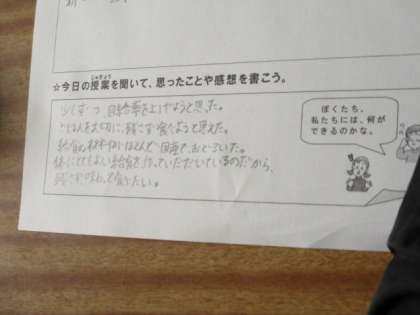 ☆今日の授業を聞いて、思ったことや感想を書こう。
じゅぎょう
少しずつ自給率を上げようと思った。
ごはんを大切に、残さず食べようと思えた。
給食の材料がほとんど国産で、おどろいた。
体にとてもよい給食を作っていただいているのだから、
残さず味わって食べたい。
ぼくたち、
私たちには、何が
できるのかな。